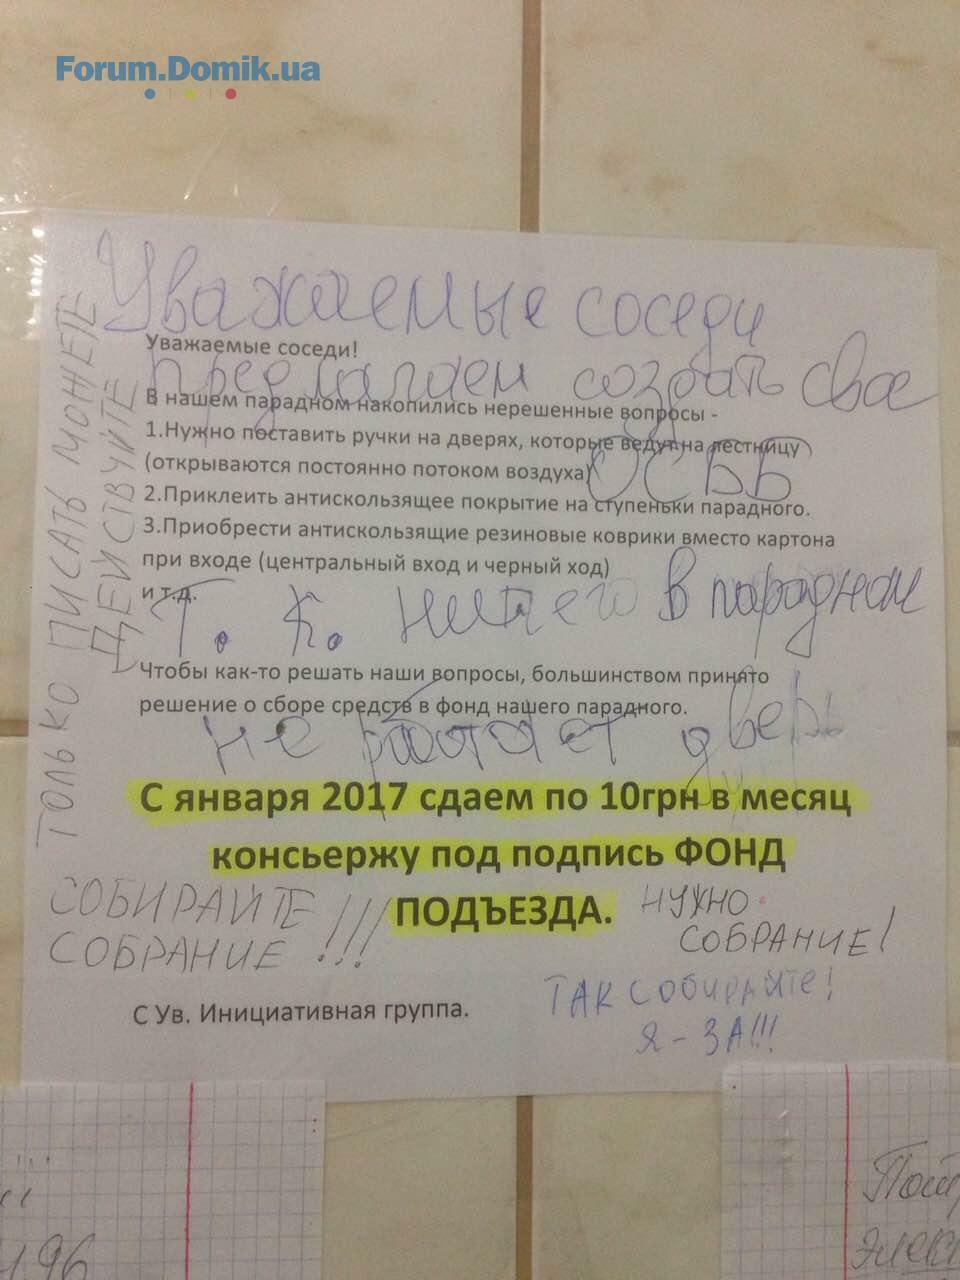 Forum.Domik.ua
Уважаемые соседи
Уважаемые соседи!
предлагаем создать свое
В нашем парадном накопились нерешенные вопросы -
1.Нужно поставить ручки на дверях, которые ведут на лестницу
(открываются постоянно потоком воздуха)
ОСББ
2.Приклеить антискользящее покрытие на ступеньки парадного.
3.Приобрести антискользящие резиновые коврики вместо картона
при входе (центральный вход и черный ход)
и т.д.
Т. к. ничего в парадном
Чтобы как-то решать наши вопросы, большинством принято
решение о сборе средств в фонд нашего парадного.
не работает дверь
С января 2017 сдаем по 10грн в месяц
консьержу под подпись ФОНД
ПОДЪЕЗДА.
ТОЛЬКО ПИСАТЬ МОЖЕТЕ
ДЕЙСТВУЙТЕ
СОБИРАЙТЕ
СОБРАНИЕ !!!
НУЖНО
СОБРАНИЕ!
ТАК СОБИРАЙТЕ!
Я - ЗА!!!
С Ув. Инициативная группа.